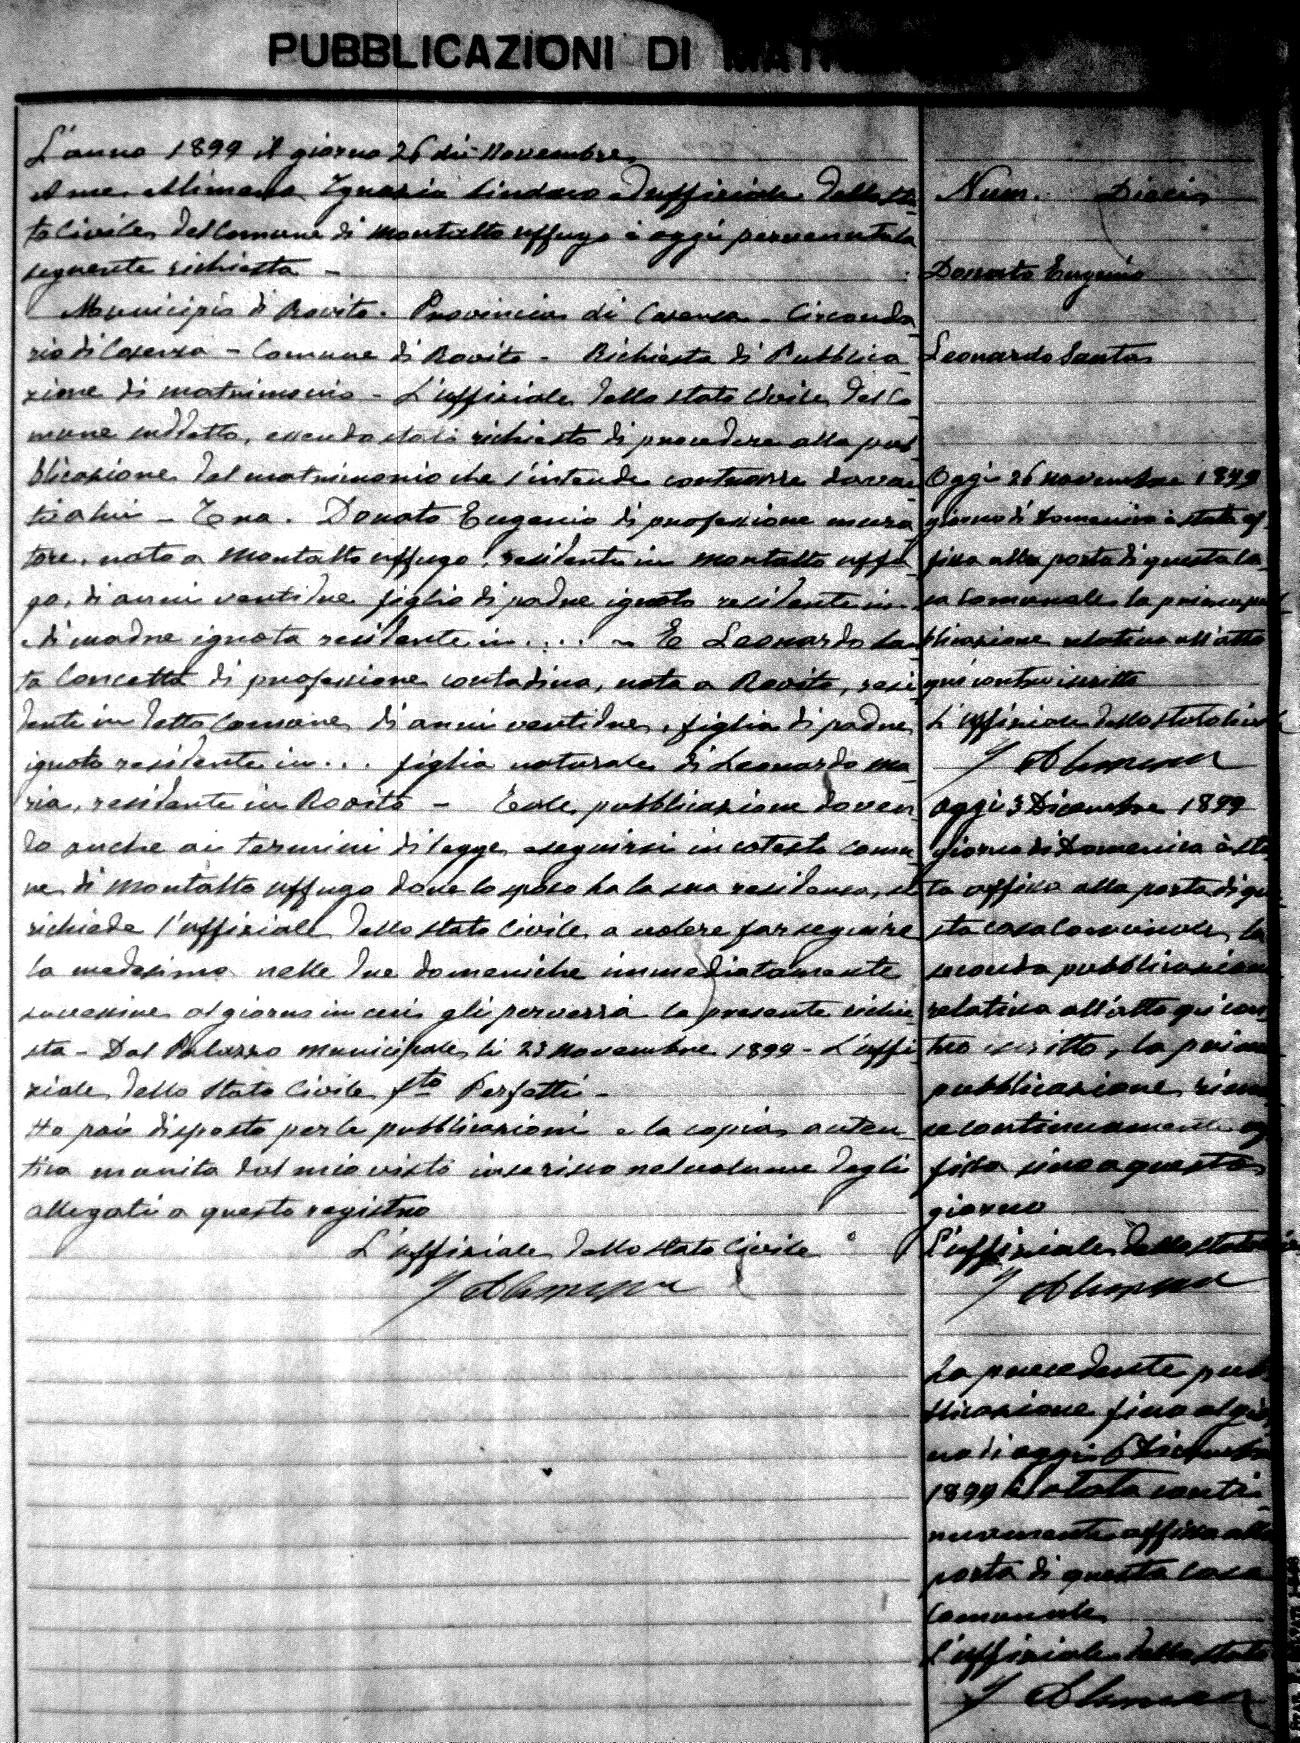 PUBBLICAZIONI DI
L'anno 1899 il giorno 26 di Novembre
A me Alimena Ignazio Sindaco ed uffiziale dello sta-
to Civile del Comune di Montalto uffugo è oggi pervenuta la
seguente richiesta -
Municipio di Rovito. Provincia di Cosenza - Circonda-
rio di Cosenza - Comune di Rovito - Richiesta di Pubblica-
zione di matrimonio - L'uffiziale dello stato Civile del Co-
mune suddetto, essendo stato richiesto di procedere alla pub-
blicazione del matrimonio che s'intende contrarre davan-
ti a lui - Tra. Donato Eugenio di professione mura-
tore, nato a Montalto uffugo, residente in Montalto uffu-
go, di anni ventidue figlio di padre ignoto residente in
di madre ignota residente in .... - E Leonardo San-
ta Concetta di professione contadina, nata a Rovito, resi-
dente in detto Comune di anni ventidue, figlia di padre
ignoto residente in ... figlia naturale di Leonardo Ma-
ria, residente in Rovito - E tale pubblicazione doven-
do anche ai termini di legge eseguirsi in cotesto Comu-
ne di Montalto uffugo dove lo sposo ha la sua residenza, si
richiede l'uffiziale dello stato Civile a volere far seguire
la medesima nelle due domeniche immediatamente
successive al giorno in cui gli perverrà la presente richie-
sta - Dal Palazzo Municipale li 23 Novembre 1899 - L'uffi-
ziale dello Stato Civile fto Perfetti -
Ho poi disposto per le pubblicazioni e la copia auten-
tica munita dal mio visto inserisco nel volume degli
allegati a questo registro
L'uffiziale dello stato Civile
I Alimena
Num. Dieci
Donato Eugenio
Leonardo Santa
Oggi 26 novembre 1899
giorno di Domenica è stata af-
fissa alla porta di questa ca-
sa Comunale la prima pub-
blicazione relativa all'atto
qui contro iscritto
L'uffiziale dello stato Civile
I Alimena
Oggi 3 Dicembre 1899
giorno di Domenica è sta-
ta affissa alla porta di que-
sta casa Comunale la
seconda pubblicazione
relativa all'atto qui con-
tro iscritto, la prima
pubblicazione rima-
se continuamente af-
fissa sino a questo
giorno
L'uffiziale dello stato
I Alimena
La precedente pub-
blicazione fino al gior-
no di oggi 6 Dicembre
1899 è stata conti-
nuamente affissa alla
porta di questa casa
Comunale
L'uffiziale dello stato
I Alimena